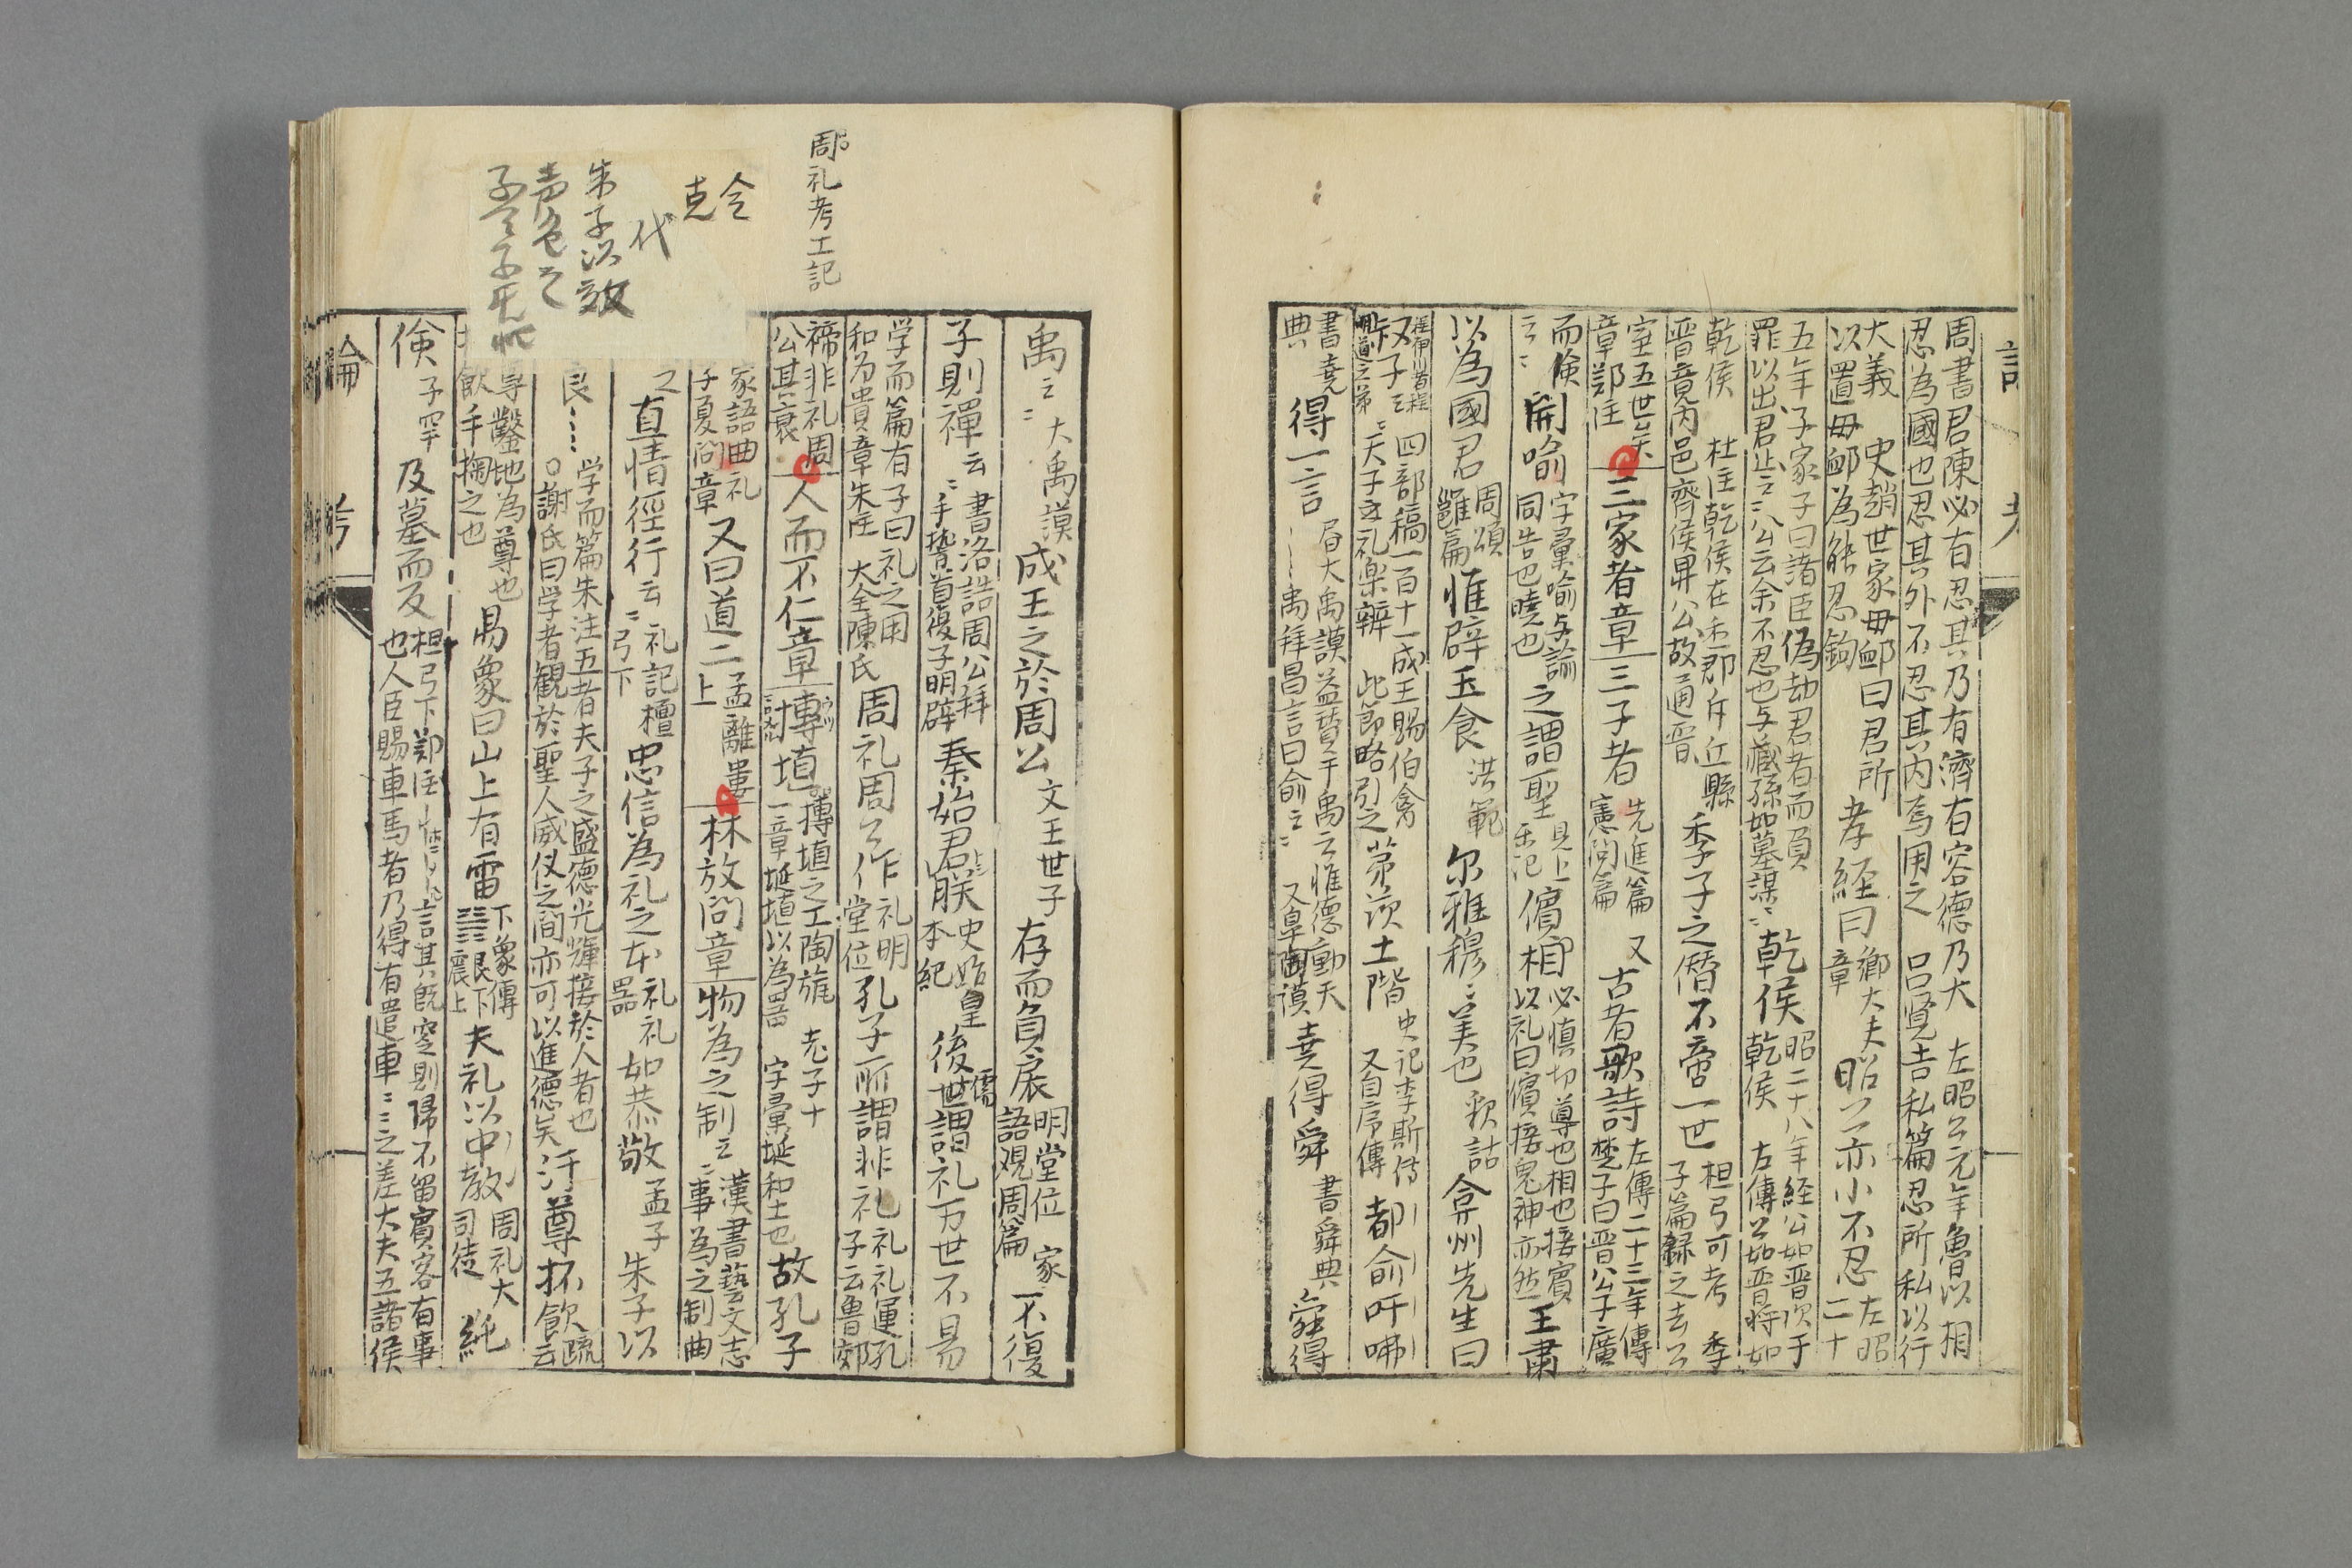 周書君陳必有忍其乃有濟有容德乃大 左昭公元年魯以相
忍為國也忍其外不忍其内焉用之 呂覧去私篇忍所私以行
大義 史趙世家毋卹曰君所
以置毋卹為能忍訽
孝経曰 鄉大夫章 昭公亦小不忍 左昭二十
五年子家子曰諸臣偽劫君者而負
罪以出君止云〻公云余不忍也与臧孫如墓謀〻 乾侯 昭二十八年経公如晋次于
乾侯 左傳公如晋将如
乾侯 杜注乾侯在 郡斥丘縣
晋竟内邑 齊侯卑公故適晋
季子之僭不啻一世 檀弓可考 季
子篇録之去公
室五世矣
章鄭注
三家者章 三子者 先進篇
憲問篇 又古者歌詩 左傳二十三年傳
楚子曰晋公子廣
而儉
云〻 開喻 字彙喻与諭
同告也曉也 之謂聖 見上
 儐相 必慎切導也相也接賓
以礼曰儐接鬼神亦然 王肅
以為國君 周頌
雝篇 惟辟玉食 洪範 尔雅穆〻美也 釈詁 弇州先生曰
四部稿一百十一成王賜伯禽
天子之礼楽辨 此節略引之 茅茨土階 史記李斯傳
又自序傳 都俞吁咈
書堯
典 得一言 大禹謨益賛于禹云惟德動天
禹拜昌言曰俞云〻 又皐陶謨 堯得舜 書舜典 舜得
周礼考工記
禹云〻 大禹謨 成王之於周公 文王世子 存而負扆 明堂位 家
語観周篇 不復
子則禪云〻 書洛誥周公拜
手稽首復子明辟 秦始君朕 史始皇
本紀 後世儒謂礼万世不易
学而篇有子曰礼之用
和為貴章朱注 大全陳氏 周礼周公作 礼明
堂位 孔子所謂非礼 礼礼運孔
子云魯郊
禘非礼周
公其衰
人而不仁章 摶埴 摶埴之工陶旊 老子十
一章埏埴以為器 字彙埏和土也 故孔子
家語曲礼
子夏問章 又曰道二 孟離婁
上
林放問章 物為之制云〻 漢書藝文志
事為之制曲
令
克
代
朱子以敬
直情徑行云〻 礼記檀
弓下 忠信為礼之本 礼礼
器 如恭敬 孟子 朱子以
良 学而篇朱注五者夫子之盛德光輝接於人者也
○謝氏曰学者観於聖人威仪之間亦可以進德矣 汙尊抔飲 疏云
尊鑿地為尊也
飲手掬之也 易象曰山上有雷 下象傳
艮下
震上 夫礼以中教 周礼大
司徒 純
儉 子罕 及墓而反 檀弓下鄭注 言其既窆則帰不留賓客有事
也人臣賜車馬者乃得有遣車〻之差大夫五諸侯
論 考